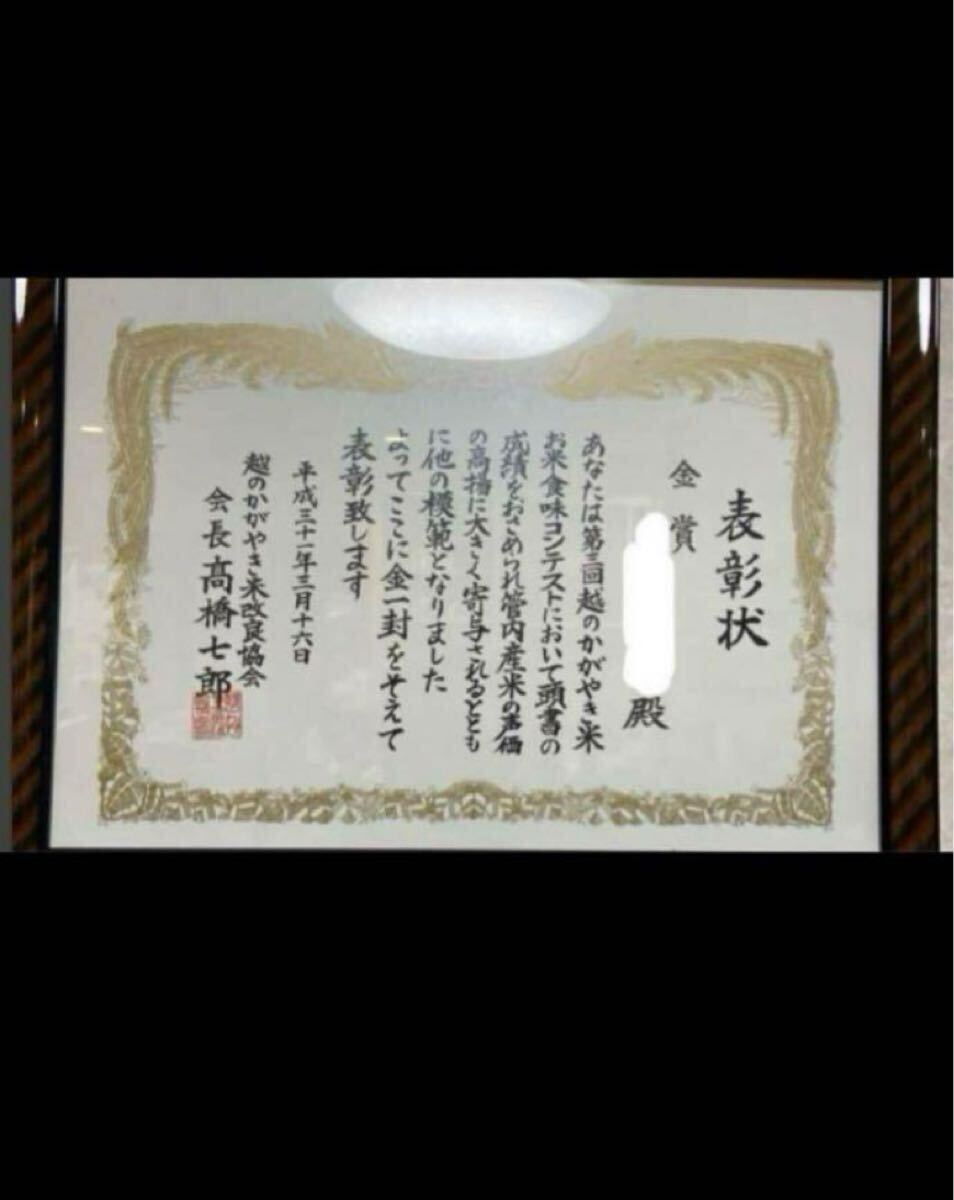 表彰状
金賞
殿
あなたは第三回越のかがやき米
お米食味コンテストにおいて頭書の
成績をおさめられ管内産米の声価
の高揚に大きく寄与されるととも
に他の模範となりました
よってここに金一封をそえて
表彰致します
平成三十一年三月十六日
越のかがやき米改良協会
会長 高橋七郎